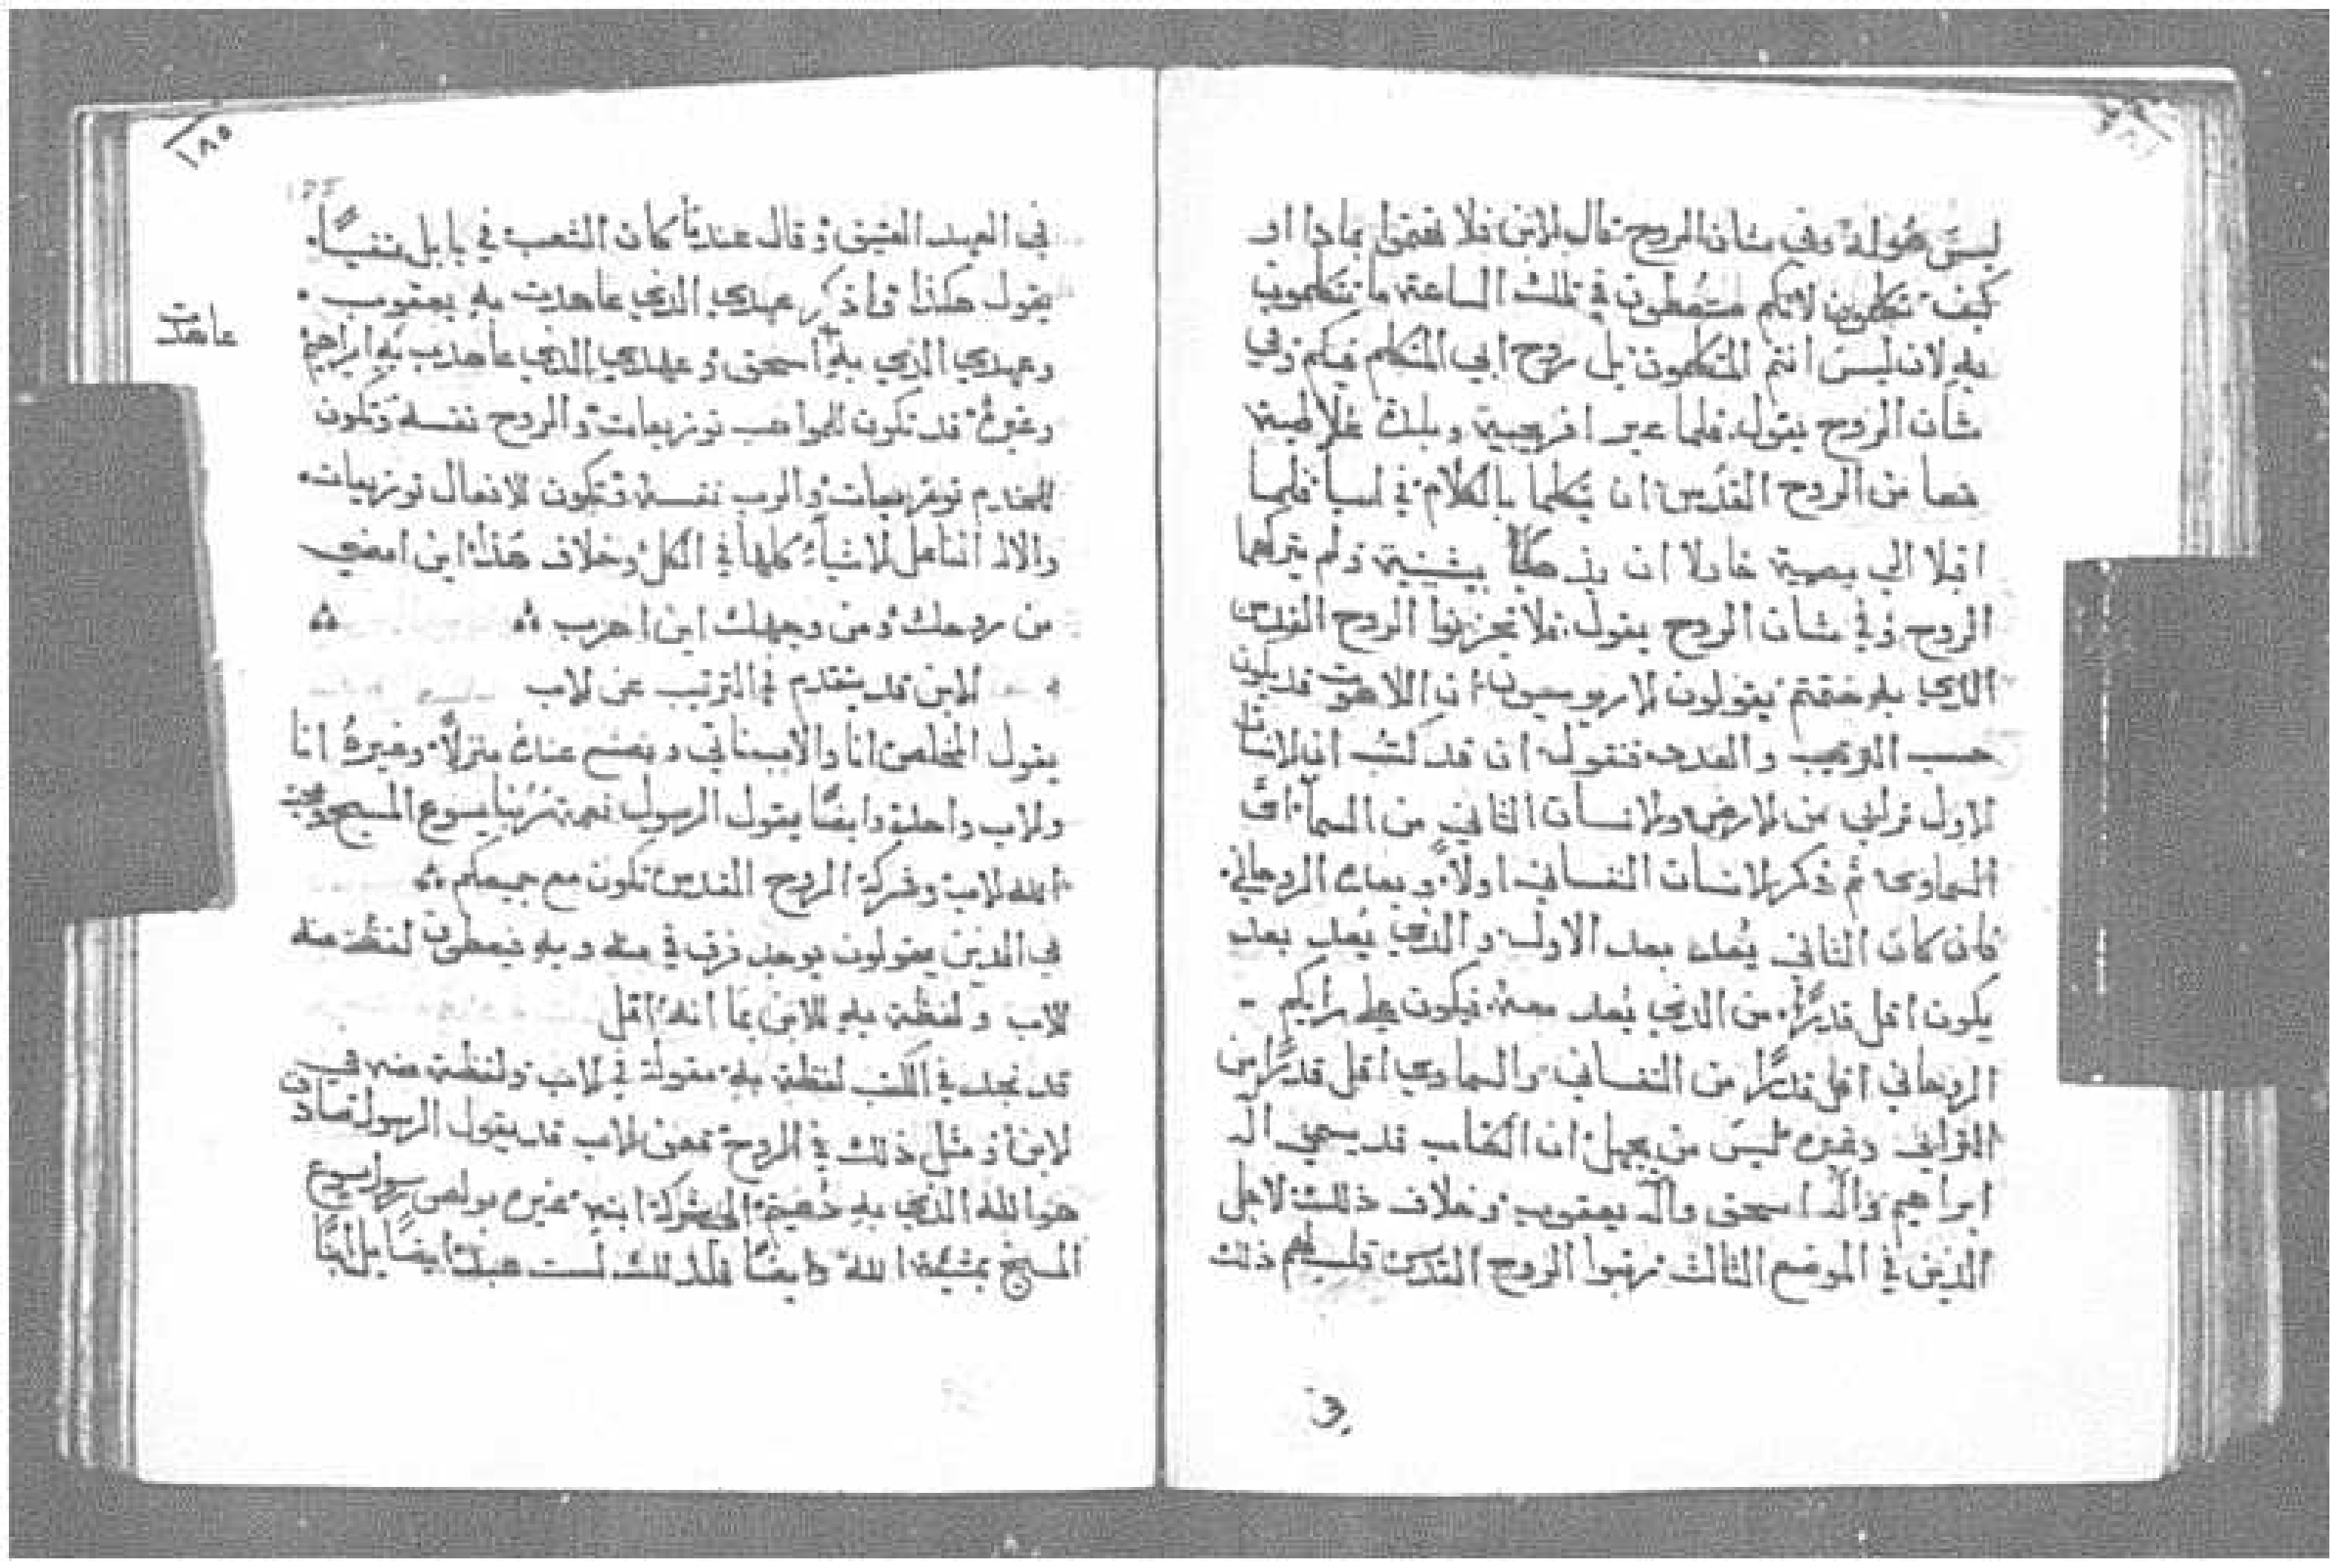 ليس هوله وفي شان الروح قال الابن فلا تهتموا بماذا او
كيف تتكلمون لانكم ستعطون في تلك الساعة ما تتكلمون
به لان ليس انتم المتكلمون بل روح ابي المتكلم فيكم وفي
شان الروح يقول فلما عبر افريجية وبلد غلاطية
منعا من الروح القدس ان يتكلما بالكلام في اسيا فلما
اقبلا الي ميسية حاولا ان يذهبا بيثنية ولم يتركهما
الروح وفي شان الروح يقول فلا تحزنوا الروح القدس
الذي به ختمتم يقولون الاريوسيون ان اللاهوت قد يكون
حسب الترتيب والعدد فنقول ان قد كتب ان الانسان
الاول ترابي من الارض والانسان الثاني من السمآ اي
السماوي ثم ذكر الانسان النفساني اولاً وبعده الروحاني
فان كان الثاني يُعد بعد الاول والذي يُعد بعد
يكون اقل قدرًا من الذي يُعد معه فيكون علي رايكم
الروحاني اقل قدرًا من النفساني والسماوي اقل قدرًا من
الترابي وغيره ليس من يجهل ان الكتاب قد يسمي الٓه
ابراهيم والٓه اسحق والٓه يعقوب وخلاف ذلك لاجل
الذين في الموضع الثالث رتبوا الروح القدس ذلك
١٨٥
في العهد العتيق وقال عندما كان الشعب في بابل
يقول هكذا واذكر عهدي الذي عاهدت به يعقوب
وعهدي الذي به اسحق وعهدي الذي عاهدت به ابراهيم
عاهدت
وغيره قد تكون المواهب توزيعات والروح نفسه وتكون
الخدم توزيعات والرب نفسه وتكون الافعال توزيعات
والاله الفاعل الاشياء كلها في الكل وخلاف هذا اين امضي
من روحك ومن وجهك اين اهرب
الابن قد يتقدم في الترتيب عن الاب
يقول المخلص انا والاب نأتي ونصنع عنده منزلاً وغيره انا
والاب واحد وايضًا يقول الرسول نعمة ربنا يسوع المسيح ومحبة
الله الاب وشركة الروح القدس تكون مع جميعكم
في الذين يقولون يوجد فرق في منه وبه فيعطون لفظة منه
للاب ولفظة به للابن بما انه اقل
قد نجد في الكتب لفظة به مقولة في الاب ولفظة منه في
الابن ومثل ذلك في الروح فعن الاب قد يقول الرسول صادق
هو الله الذي به دُعيتم الي شركة ابنه غيره بولس رسول يسوع
المسيح بمشيئة الله وايضًا فلذلك لست عبدًا ايضًا بل ابنًا